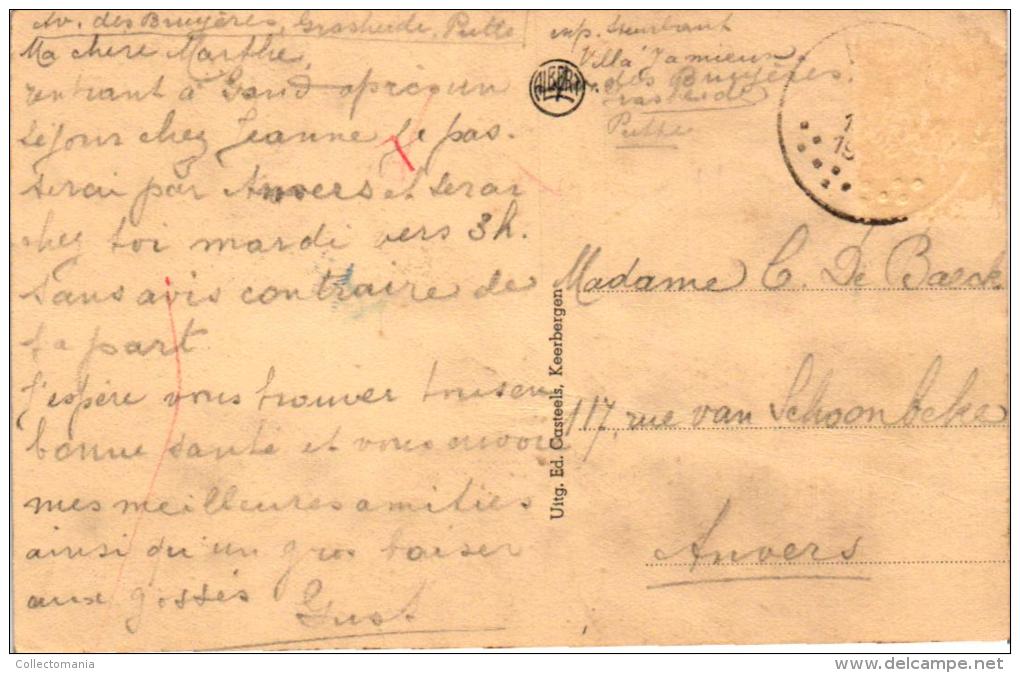 Av. des Bruyères, Grasheide, Putte
Ma chere Marthe,
rentrant à Gand après un
séjour chez Jeanne je pas-
serai par Anvers et serai
chez toi mardi vers 3h.
Sans avis contraire de
ta part
J'espère vous trouver tous en
bonne santé et vous envoie
mes meilleures amitiés
ainsi qu'un gros baiser
aux gosses
Gust
exp.
Villa
des Bruyères
Grasheide
Putte
ALBERT
Uitg. Ed. Casteels, Keerbergen
Madame C. De Baeck
117, rue van Schoonbeke
Anvers
Collectomania
delcampe.net